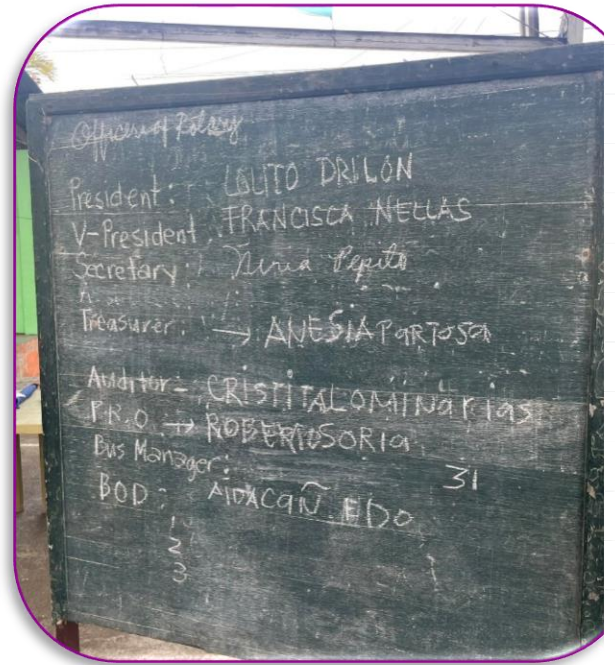 Officers of
President: LOLITO DRILON
V-President: FRANCISCA NELLAS
Secretary: Pepito
Treasurer: → ANESIA PARTOSA
Auditor - CRISTITA LOMINARIAS
P.R.O → ROBERTO SORIA
Bus Manager:
31
BOD: AIDA CAÑEDO
1
2
3